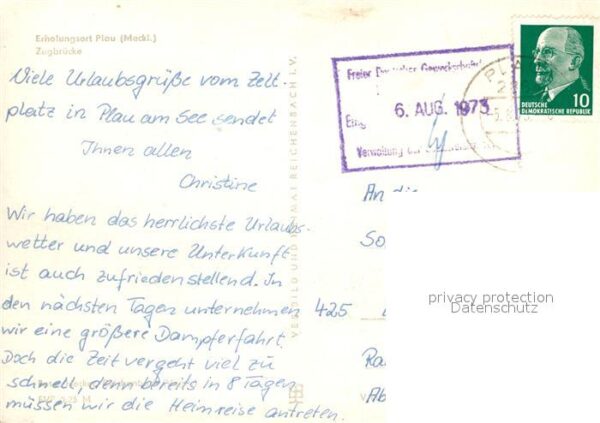 Erholungsort Plau (Meckl.)
Zugbrücke
Viele Urlaubsgrüße vom Zelt-
platz in Plau am See sendet
Ihnen allen
Christine
Wir haben das herrlichste Urlaubs-
wetter und unsere Unterkunft
ist auch zufriedenstellend. In
den nächsten Tagen unternehmen
wir eine größere Dampferfahrt.
Doch die Zeit vergeht viel zu
schnell, denn bereits in 8 Tagen
müssen wir die Heimreise antreten.
VERLAG BILD UND HEIMAT REICHENBACH I. V.
Freier Deutscher Gewerkschafts
6. AUG. 1973
Eing
Verwaltung der
PLAU
10
DEUTSCHE
DEMOKRATISCHE REPUBLIK
An die
425
privacy protection
Datenschutz